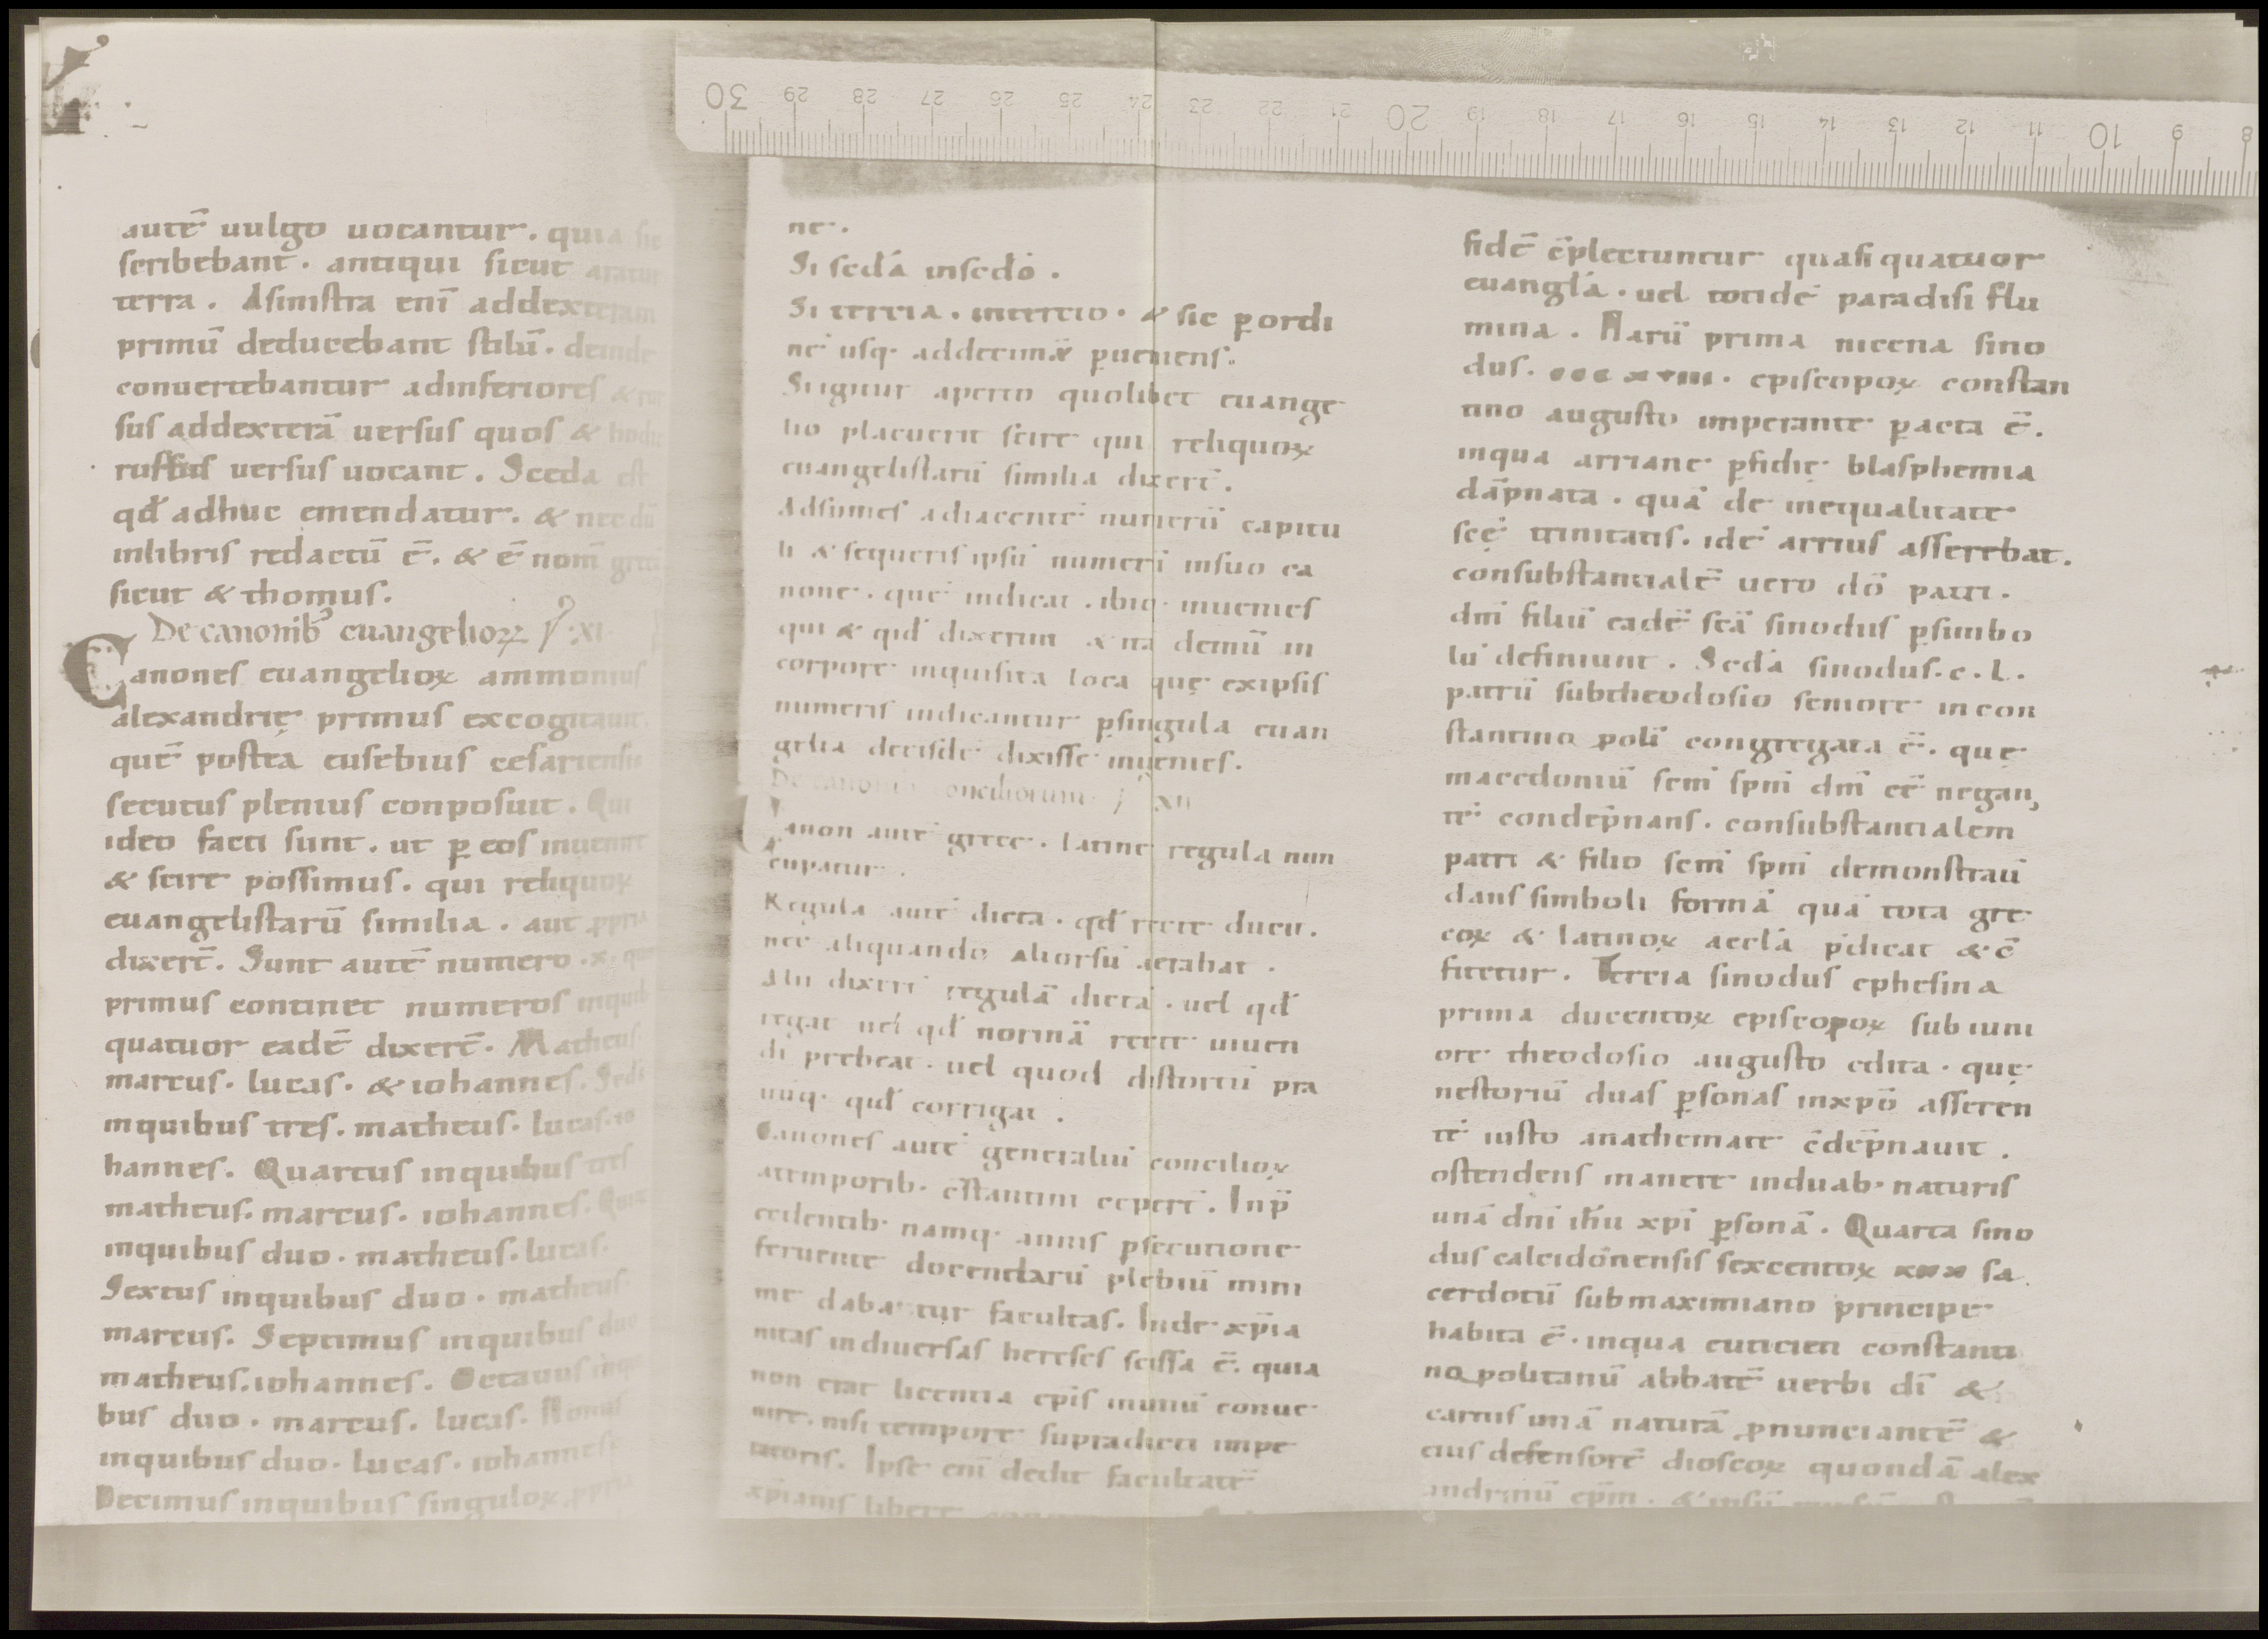 autē uulgo uocantur. quia sic
scribebant. antiqui sicut aratur
terra. Asinistra enī addexteram
primū deducebant stilū. deinde
conuertebantur adinferiores & rur
sus addexterā uersus quos & hodie
rusticus uersus uocant. Sceda est
qđ adhuc emendatur. & necdū
inlibris redactū ē. & ē nom̄ grecū
sicut & thomus.
De canonibꝰ euangelioꝝ XI
Canones euangelioꝝ ammonius
alexandrię primus excogitauit.
quē postea eusebius cesariensis
secutus plenius conposuit. Qui
ideo facti sunt. ut ꝑ eos inuenire
& scire possimus. qui reliquoꝝ
euangelistarū similia. aut ꝓpria
dixerē. Sunt autē numero .x. quoꝝ
primus continet numeros inquib
quatuor eadē dixerē. Matheus.
marcus. lucas. & iohannes. Sedꝰ
inquibus tres. matheus. lucas. io
hannes. Quartus inquibus tres
matheus. marcus. iohannes. Quint
inquibus duo. matheus. lucas.
Sextus inquibus duo. matheus
marcus. Septimus inquibus duo
matheus. iohannes. Octauus inqui
bus duo. marcus. lucas. Nonus
inquibus duo. lucas. iohannes
Decimus inquibus singuloꝝ ꝓpria
30 29 28 27 26 25 24 23 22 21 20 19 18 17 16 15 14 13 12 11 10 9 8
ne.
Si scdā inscdō.
Si tercia. intercio. & sic ꝑordi
nē usq. addecimā ꝑueniens.
Si igitur aperto quolibet euange
lio placuerit scire qui reliquoꝝ
euangelistarū similia dixerī.
Adsumes adiacentē numerū capitu
li & sequeris ipsū numerī insuo ca
none. quē indicat. ibiq. inuenies
qui & qid dixerint & ita demū in
corpore inquisita loca quę exipsis
numeris indicantur ꝑsingula euan
gelia deeisdē dixisse inuenies.
De canonib conciliorum XII
Canon autē grece. latine regula nun
cupatur.
Regula autē dicta. qđ recte ducit.
nec aliquando aliorsū aetrahat.
Alii dixerī regulā dictā. uel qđ
regat uel qđ normā recte uiuen
di prebeat. uel quod distortū pra
uūq. qđ corrigat.
Canones autē generaliū concilioꝝ
atemporib. c̄stantini cepert̄. Inp̄
cedentib. namq. annis ꝑsecutione
feruente docendarū plebiū mini
me dabatur facultas. Inde xp̄ia
nitas indiuersas hereses scissa ē. quia
non erat licentia ep̄is inunū conue
nire. nisi tempore supradicti impe
ratoris. Ipse enī dedit facultatē
xp̄ianis libere
fidē c̄plectuntur quasi quatuor
euanglā. uel totidē paradisi flu
mina. Harū prima nicena sino
dus. ccc xviii. episcopoꝝ constan
tino augusto imperante ꝑacta ē.
inqua arriane ꝑfidię blasphemia
dāpnata. quā de inequalitate
scę̄ trinitatis. idē arrius asserebat.
consubstantialē uero dō patri.
dn̄i filiū eadē scā sinodus ꝑsimbo
lū definiunt. Scdā sinodus. c. l.
patrū subtheodosio seniore incon
stantino poli congregata ē. quę
macedoniū scm̄ sp̄m dm̄ eē negan
tē condēpnans. consubstantialem
patri & filio scm̄ sp̄m demonstraui
dans simboli formā quā tota gre
coꝝ & latinoꝝ aeclā p̄dicat & c̄
fitetur. Tercia sinodus ephesina
prima ducentoꝝ episcopoꝝ subiuni
ore theodosio augusto edita. quę
nestoriū duas ꝑsonas inxpō asseren
tē iusto anathemate c̄dēpnauit.
ostendens manere induab. naturis
unā dn̄i ih̄u xp̄i ꝑsonā. Quarta sino
dus calcidonensis sexcentoꝝ xxx sa
cerdotū submaximiano principe
habita ē. inqua euticien constanti
nopolitanū abbatē uerbi dī &
carnis unā naturā ꝓnunciantē &
eius defensorē dioscoꝝ quondā alex
andrinū ep̄m.